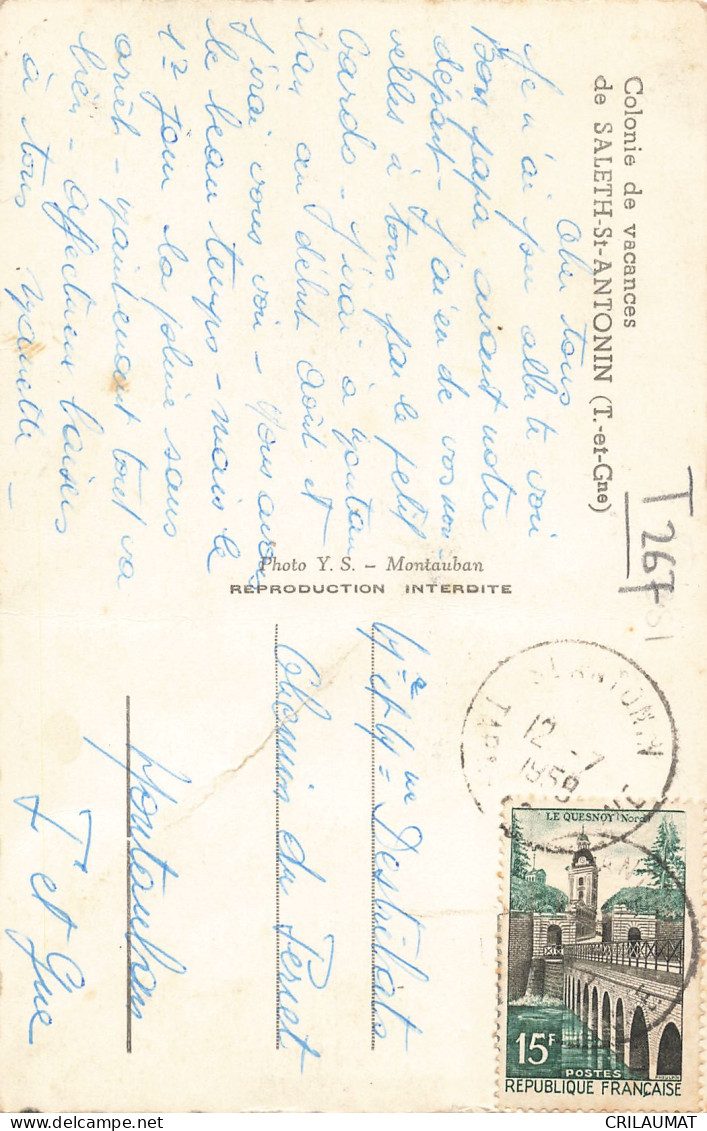 Colonie de vacances
de SALETH-St-ANTONIN (T.-et-Gne)
Cher tous
Je n'ai pu aller te voir
Bon papa avant notre
départ - J'ai eu de vos nou-
velles à tous par le petit
J'irai à Montau-
ban au début Août et
J'irai vous voir - Nous avons
le beau temps - mais le
1er jour la pluie sans
arrêt - Maintenant tout va
bien - affectueux baisers
à tous
Photo Y. S. - Montauban
REPRODUCTION INTERDITE
Mr et Mme
Chemin du
Montauban
T et Gne
T 267
ST ANTONIN
12 -7
1958
LE QUESNOY (Nord)
15F
POSTES
RÉPUBLIQUE FRANÇAISE
CRILAUMAT